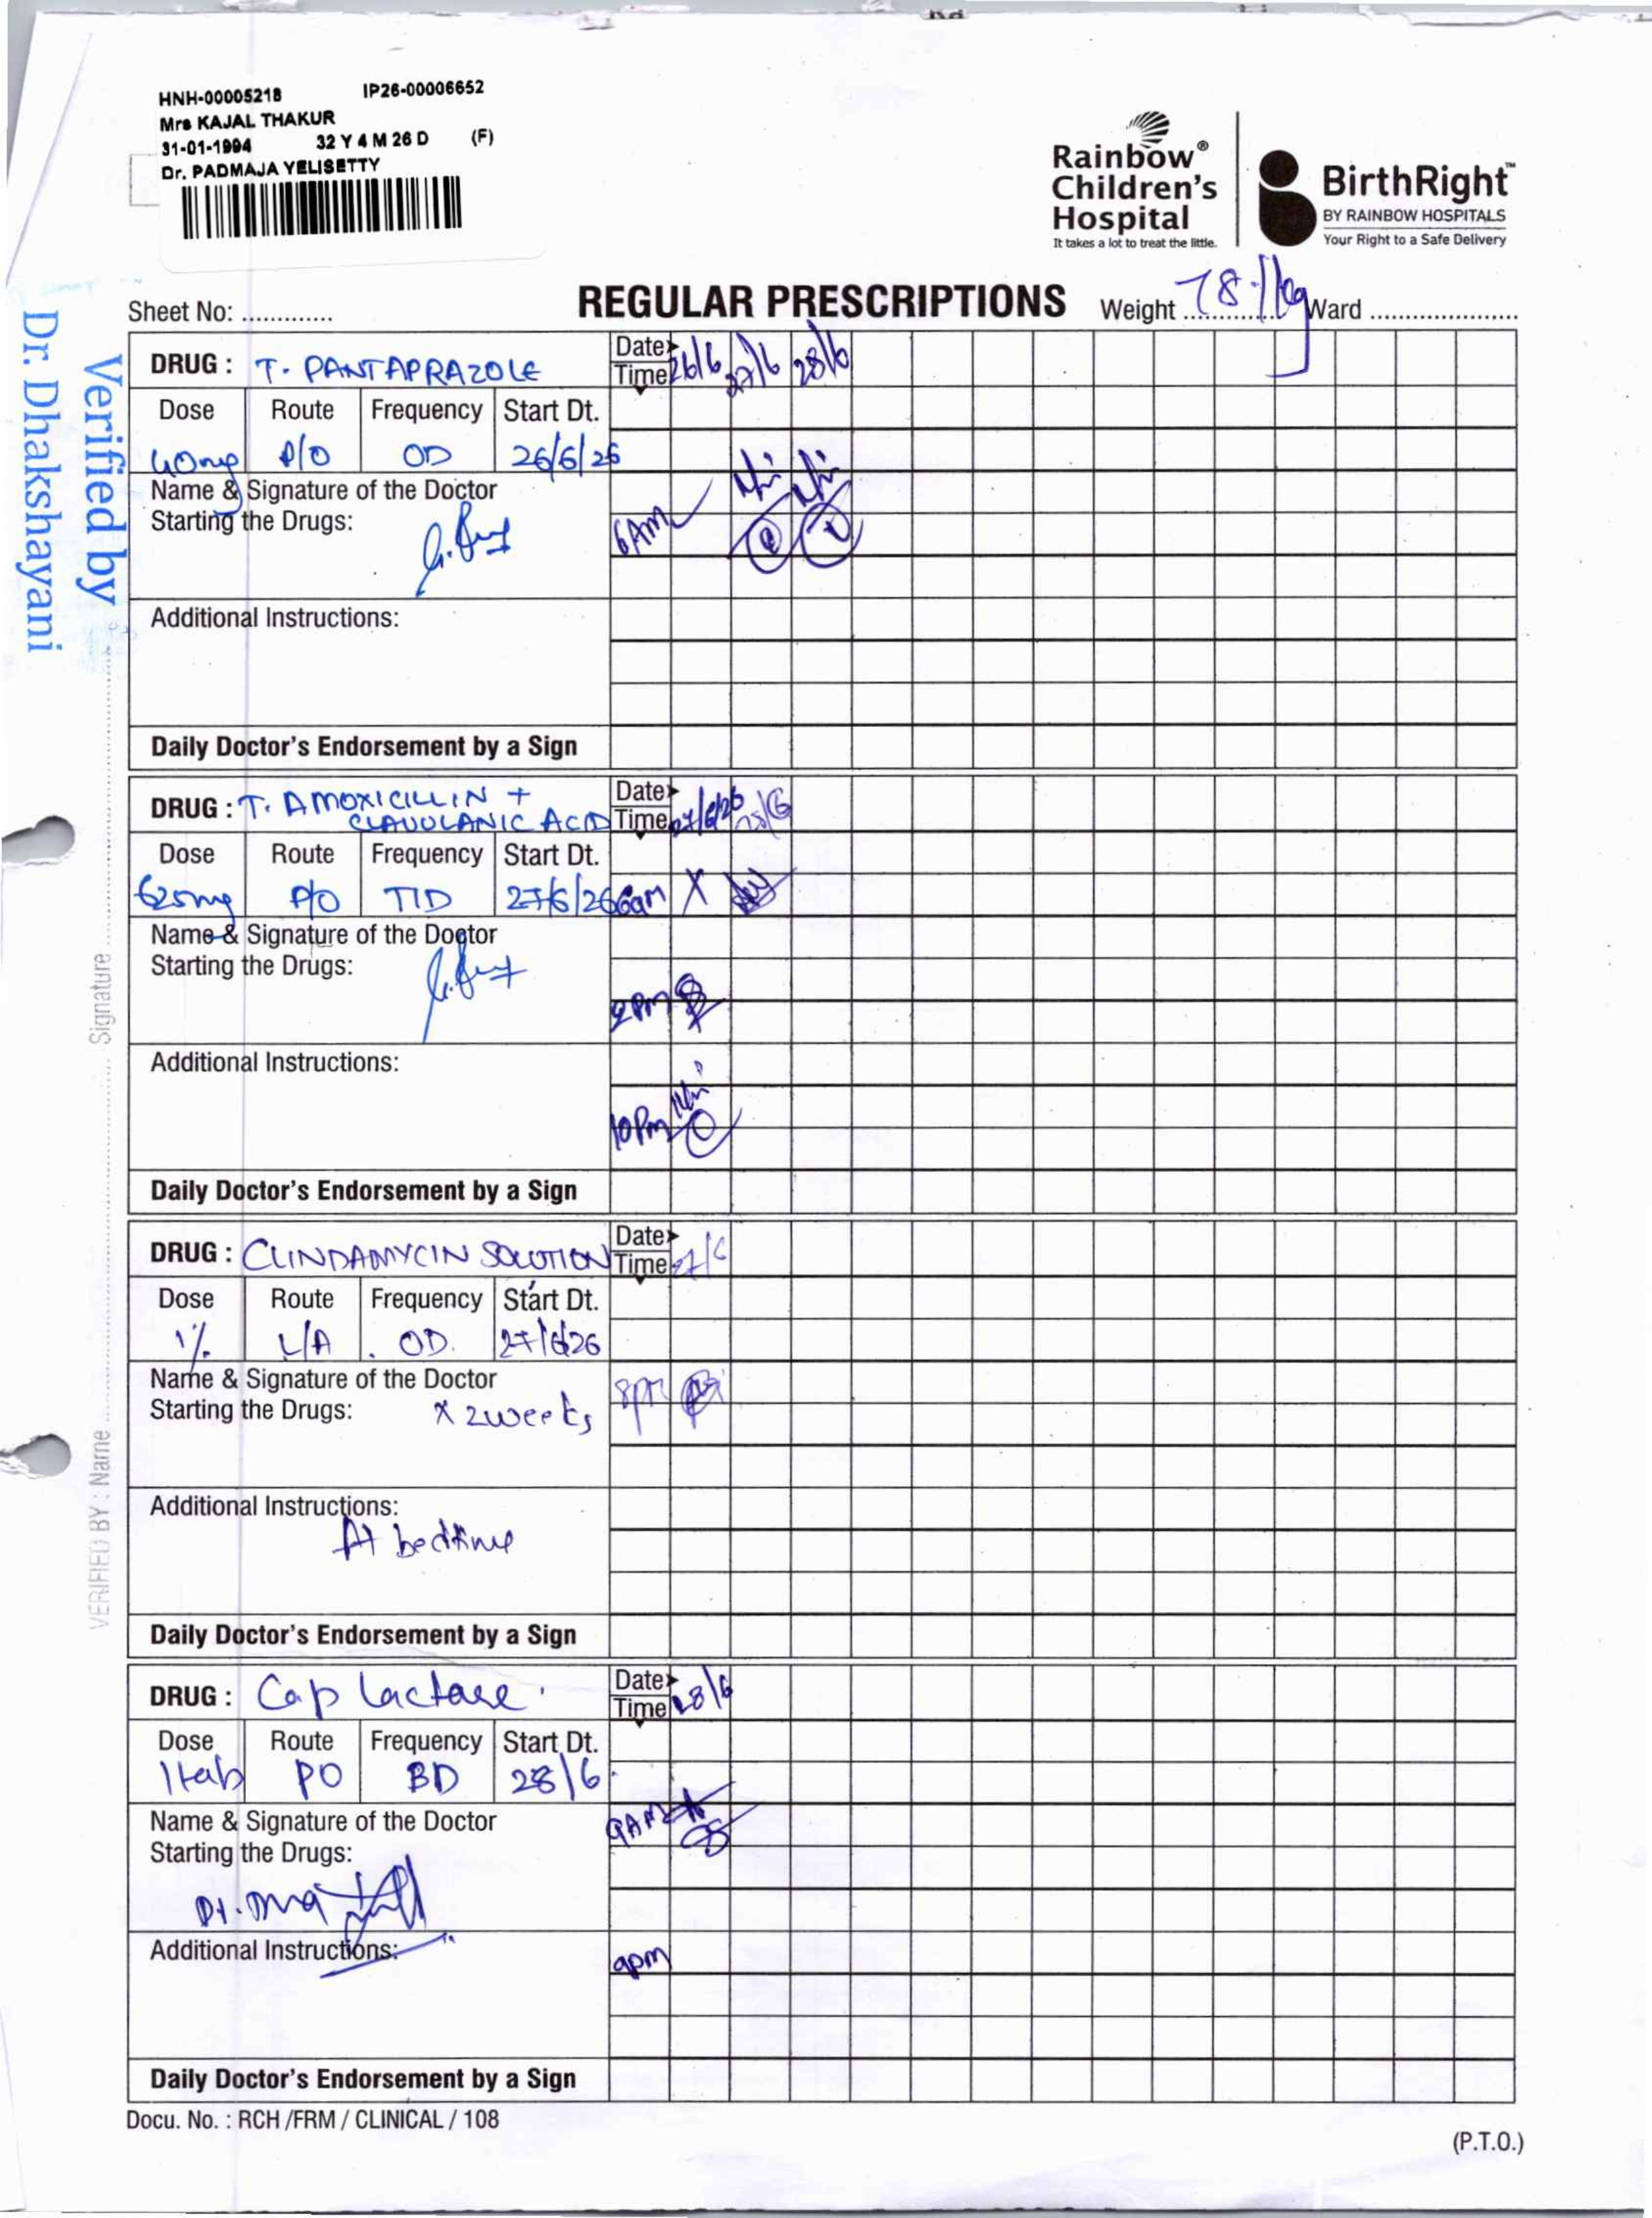 HNH-00005218 IP26-00006652
Mrs KAJAL THAKUR
31-01-1994 32 Y 4 M 26 D (F)
Dr. PADMAJA YELISETTY
Rainbow®
Children's
Hospital
It takes a lot to treat the little.
BirthRight™
BY RAINBOW HOSPITALS
Your Right to a Safe Delivery
Verified by
Dr. Dhakshayani
Sheet No: ............
REGULAR PRESCRIPTIONS
Weight Ward
DRUG : T. PANTAPRAZOLE
Date
Time 26/6 27/6 28/6
Dose Route Frequency Start Dt.
40mg P/O OD 26/6/26
Name & Signature of the Doctor
Starting the Drugs:
6AM
Additional Instructions:
Daily Doctor's Endorsement by a Sign
DRUG : T. AMOXICILLIN +
CLAVULANIC ACID
Date
Time 27/6/26 28/6
Dose Route Frequency Start Dt.
625mg P/O TID 27/6/26
6am X
Name & Signature of the Doctor
Starting the Drugs:
2PM
Additional Instructions:
10Pm
Daily Doctor's Endorsement by a Sign
DRUG : CLINDAMYCIN SOLUTION
Date
Time 27/6
Dose Route Frequency Start Dt.
1% L/A OD. 27/6/26
Name & Signature of the Doctor
Starting the Drugs: X 2weeks
8pm
Additional Instructions:
At bedtime
Daily Doctor's Endorsement by a Sign
DRUG : Cap lactase.
Date
Time 28/6
Dose Route Frequency Start Dt.
1tab PO BD 28/6
Name & Signature of the Doctor
Starting the Drugs:
9AM
Additional Instructions:
9pm
Daily Doctor's Endorsement by a Sign
VERIFIED BY : Name Signature
Docu. No. : RCH /FRM / CLINICAL / 108
(P.T.O.)